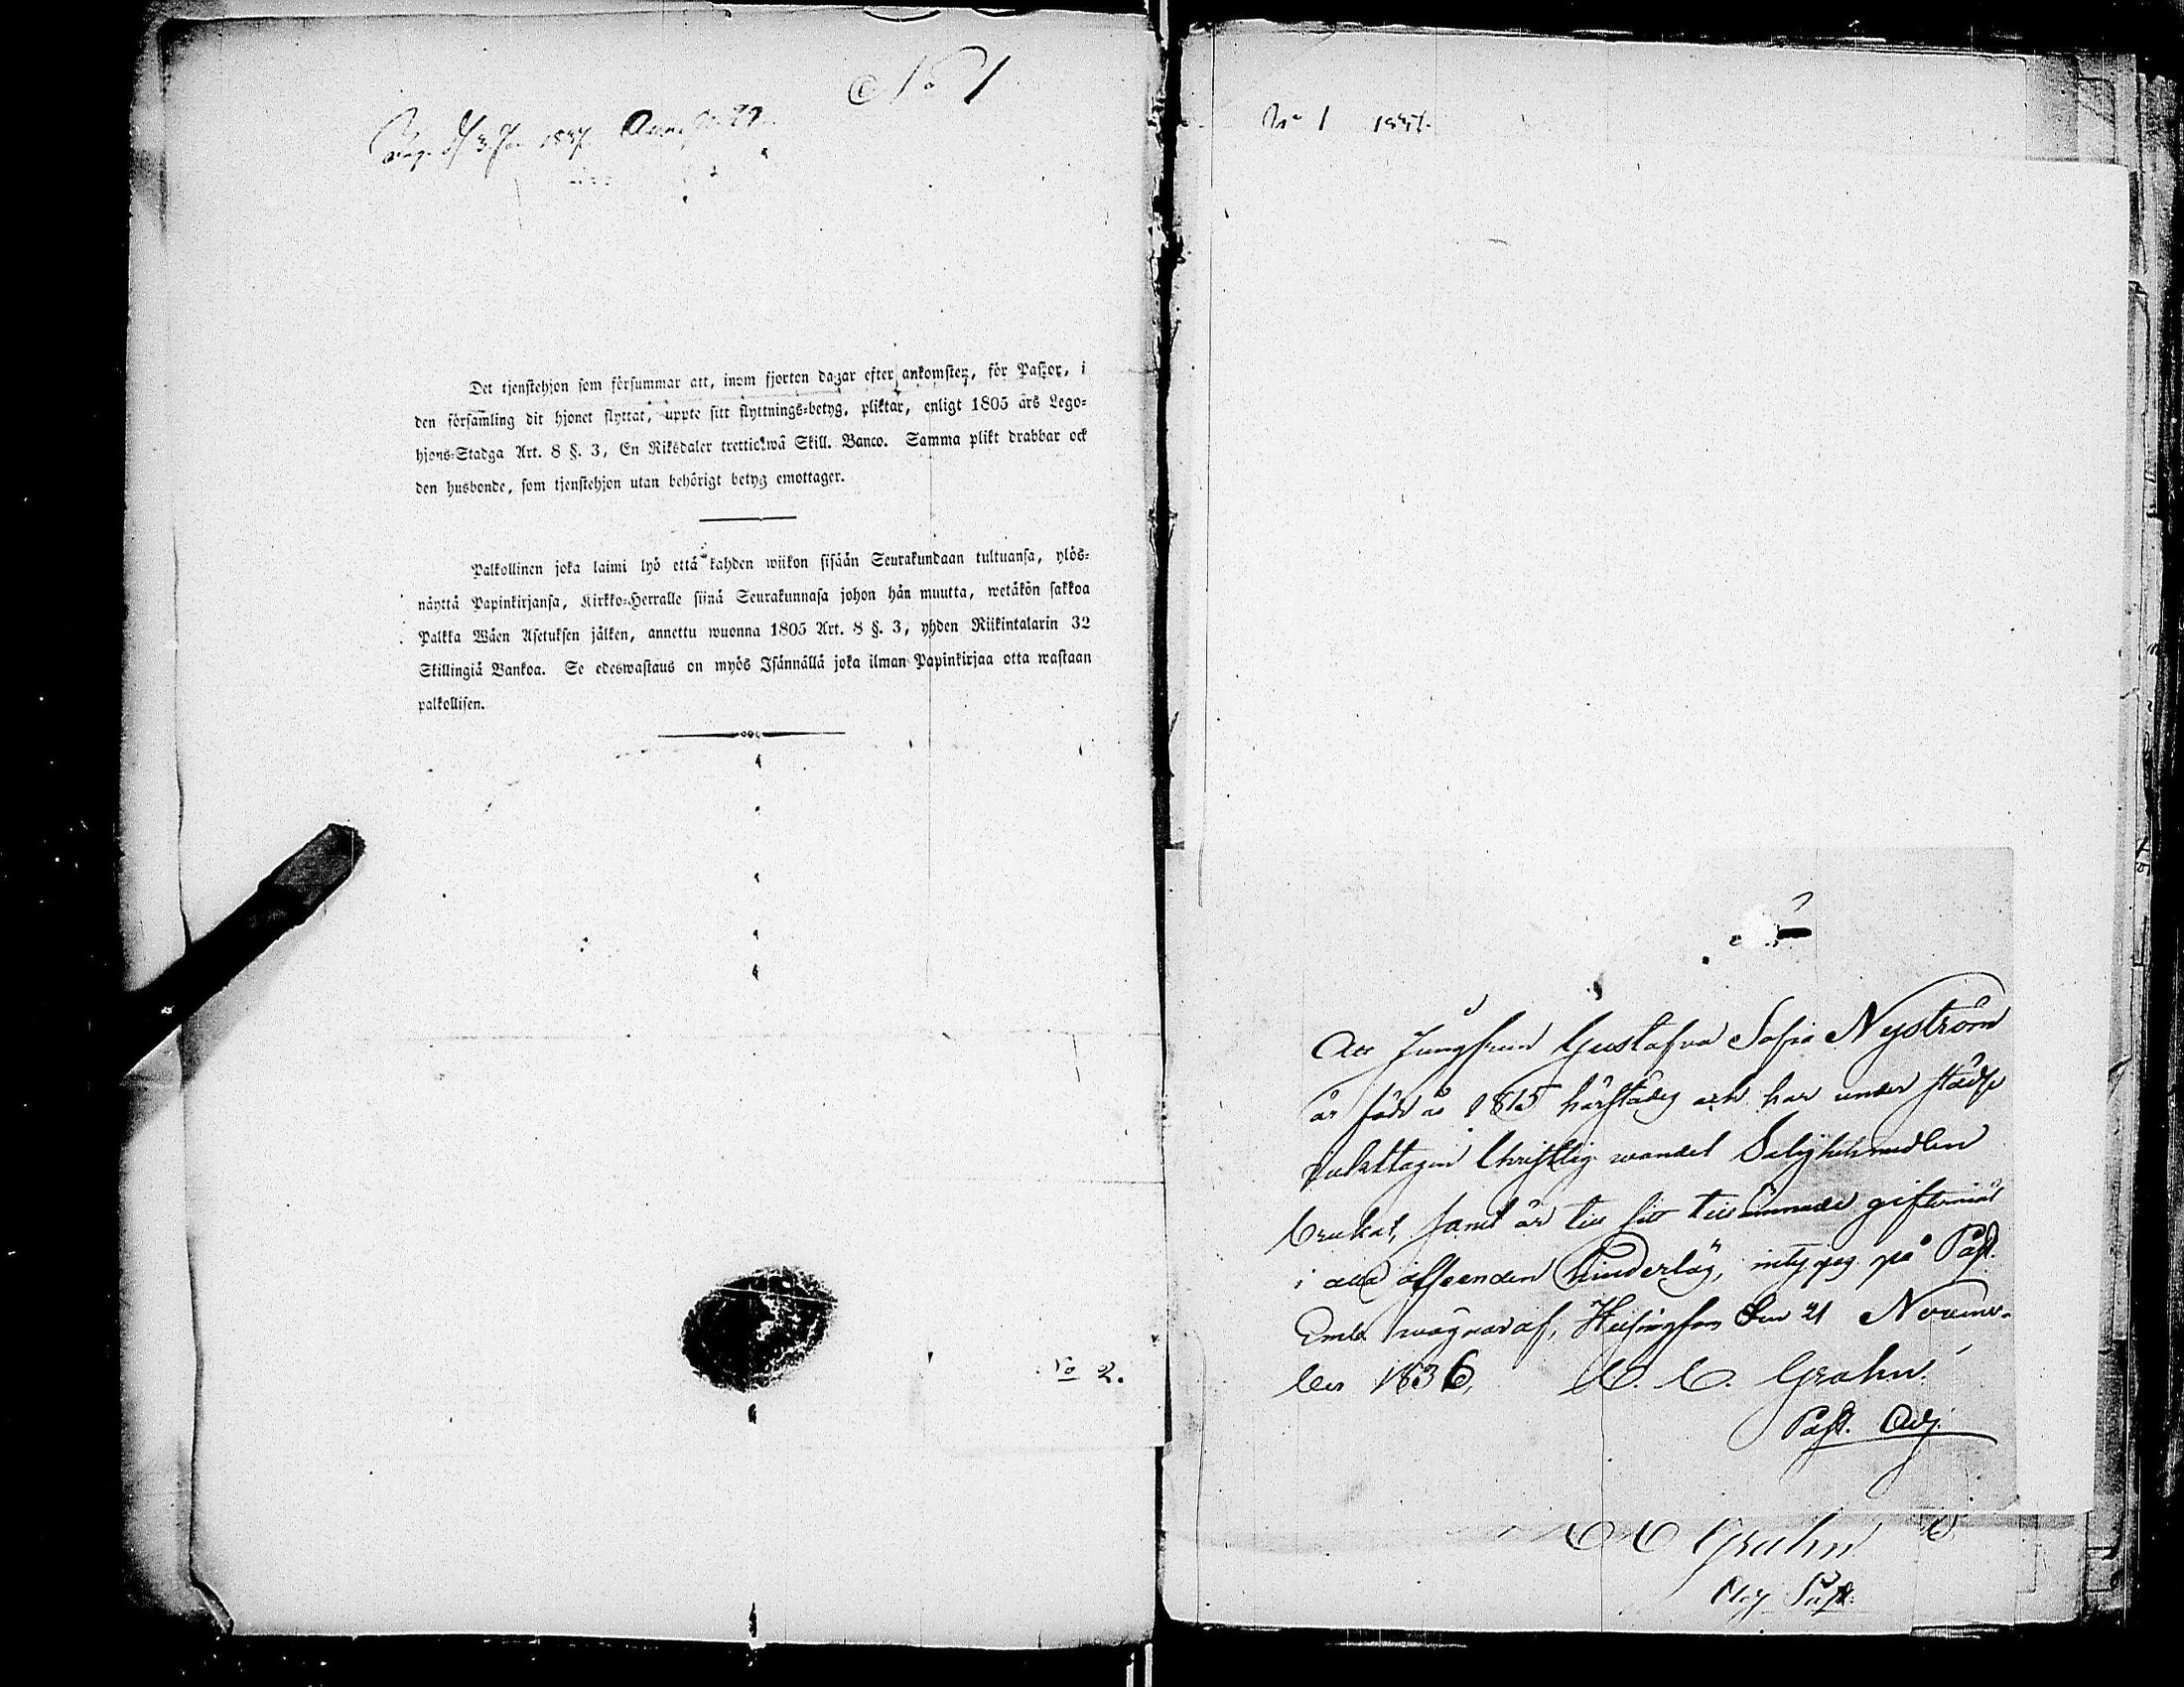 No 1
1837.
Det tjenstehjon som försummar att, inom fjorton dagar efter ankomsten, för Pastor, i
den församling dit hjonet flyttat, uppte sitt flyttnings-betyg, pliktar, enligt 1805 års Lego-
hjons-Stadga Art. 8 §. 3, En Riksdaler trettiotwå Skill. Banco. Samma plikt drabbar ock
den husbonde, som tjenstehjon utan behörigt betyg emottager.
Palkollinen joka laimi lyö että kahden wiikon sisään Seurakundaan tultuansa, ylös-
näyttä Papinkirjansa, Kirkko-Herralle siinä Seurakunnasa johon hän muutta, wetäkön sakkoa
Palkka Wäen Asetuksen jälken, annettu wuonna 1805 Art. 8 §. 3, yhden Riikintalarin 32
Skillingiä Bankoa. Se edeswastaus on myös Isännällä joka ilman Papinkirjaa otta wastaan
palkollisen.
No 2.
No 1 1837.
Att Jungfrun Gustafva Sofia Nyström
är född år 1815 härstädes och har under städse
iakttagen Christlig wandel Salighetsmedlen
brukat, samt är till sitt tillämnade giftermål
i alla afseenden hinderlös, intygas på Past.
Embe wägnar af, Helsingfors den 21 Novem-
ber 1836, C. C. Grahn.
Past. Adj.
C C Grahn
Adj Past.